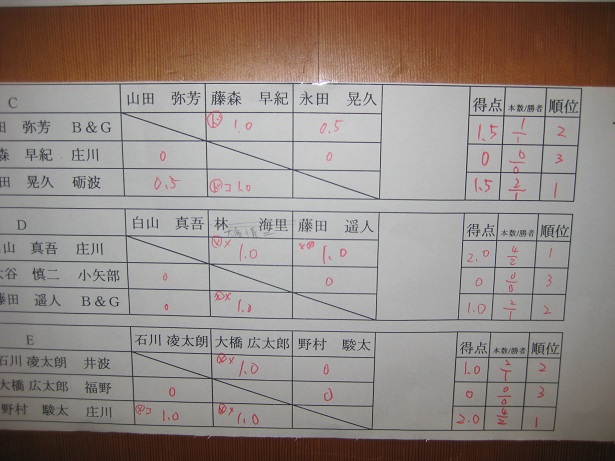 C 山田 弥芳 藤森 早紀 永田 晃久 得点 本数/勝者 順位
田 弥芳 B&G 1.0 0.5 1.5 1/1 2
森 早紀 庄川 0 0 0 0/0 3
田 晃久 砺波 0.5 コ 1.0 1.5 2/1 1
D 白山 真吾 林 海里 藤田 遥人 得点 本数/勝者 順位
山 真吾 庄川 × 1.0 1.0 2.0 4/2 1
大谷 慎二 小矢部 0 0 0 0/0 3
藤田 遥人 B&G 0 × 1.0 1.0 2/1 2
E 石川 凌太朗 大橋 広太郎 野村 駿太 得点 本数/勝者 順位
石川 凌太朗 井波 × 1.0 0 1.0 2/1 2
大橋 広太郎 福野 0 0 0 0/0 3
野村 駿太 庄川 コ 1.0 × 1.0 2.0 4/2 1